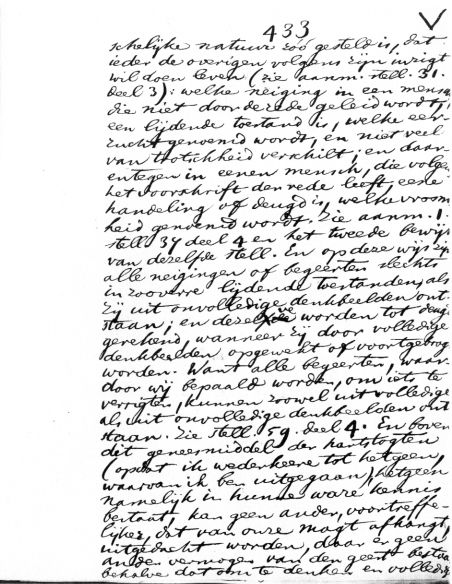 433
schelijke natuur zóó gesteld is, dat
ieder de overigen volgens zijn inzigt
wil doen leven (zie aanm. stell. 31.
deel 3): welke neiging in een mensch
die niet door de rede geleid wordt,
een lijdende toestand is, welke eer-
zucht genoemd wordt, en niet veel
van trotschheid verschilt; en daar-
entegen in eenen mensch, die volgens
het voorschrift der rede leeft, eene
handeling of deugd is, welke vroom-
heid genoemd wordt. Zie aanm. 1.
stell. 37 deel 4 en het tweede bewijs
van dezelfde stell. En op deze wijs zijn
alle neigingen of begeerten slechts
in zooverre lijdende toestanden, als
zij uit onvolledige denkbeelden ont-
staan; en dezelve worden tot deugd
gerekend, wanneer zij door volledige
denkbeelden opgewekt of voortgebragt
worden. Want alle begeerten, waar-
door wij bepaald worden, om iets te
verrigten, kunnen zoowel uit volledige
als uit onvolledige denkbeelden ont
staan. Zie stell. 59. deel 4. En boven
dit geneesmiddel der hartstogten
(opdat ik wederkeere tot hetgeen,
waarvan ik ben uitgegaan), hetgeen
namelijk in hunne ware kennis
bestaat, kan geen ander, voortreffe-
lijker, dat van onze magt afhangt,
uitgedacht worden, daar er geen
ander vermogen van den geest bestaat
behalve dat om te denken en volledige